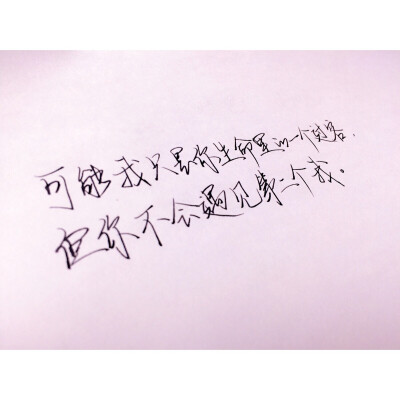 可能我只是你生命里的一个过客.
但你不会遇见第二个我.